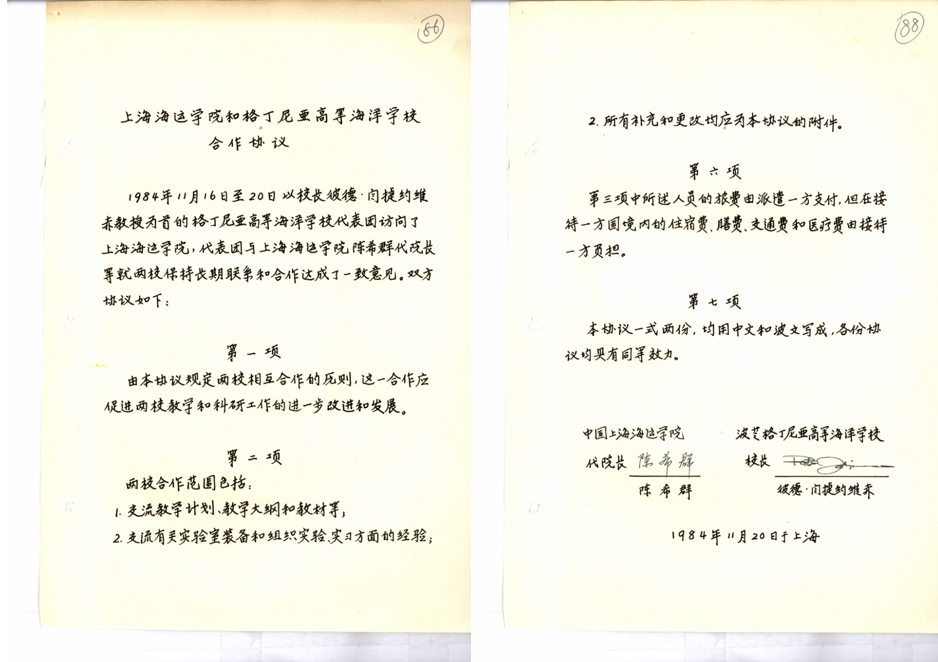 86
上海海运学院和格丁尼亚高等海洋学校
合作协议
1984年11月16日至20日以校长彼德·闩捷约维
赤教授为首的格丁尼亚高等海洋学校代表团访问了
上海海运学院,代表团与上海海运学院陈希群代院长
等就两校保持长期联系和合作达成了一致意见。双方
协议如下:
第一项
由本协议规定两校相互合作的原则,这一合作应
促进两校教学和科研工作的进一步改进和发展。
第二项
两校合作范围包括:
1. 交流教学计划、教学大纲和教材等;
2. 交流有关实验室装备和组织实验、实习方面的经验;
88
2. 所有补充和更改均应为本协议的附件。
第六项
第三项中所述人员的旅费由派遣一方支付,但在接
待一方国境内的住宿费、膳费、交通费和医疗费由接待
一方负担。
第七项
本协议一式两份,均用中文和波文写成,各份协
议均具有同等效力。
中国上海海运学院 波兰格丁尼亚高等海洋学校
代院长 陈希群 校长
陈希群 彼德·闩捷约维赤
1984年11月20日于上海